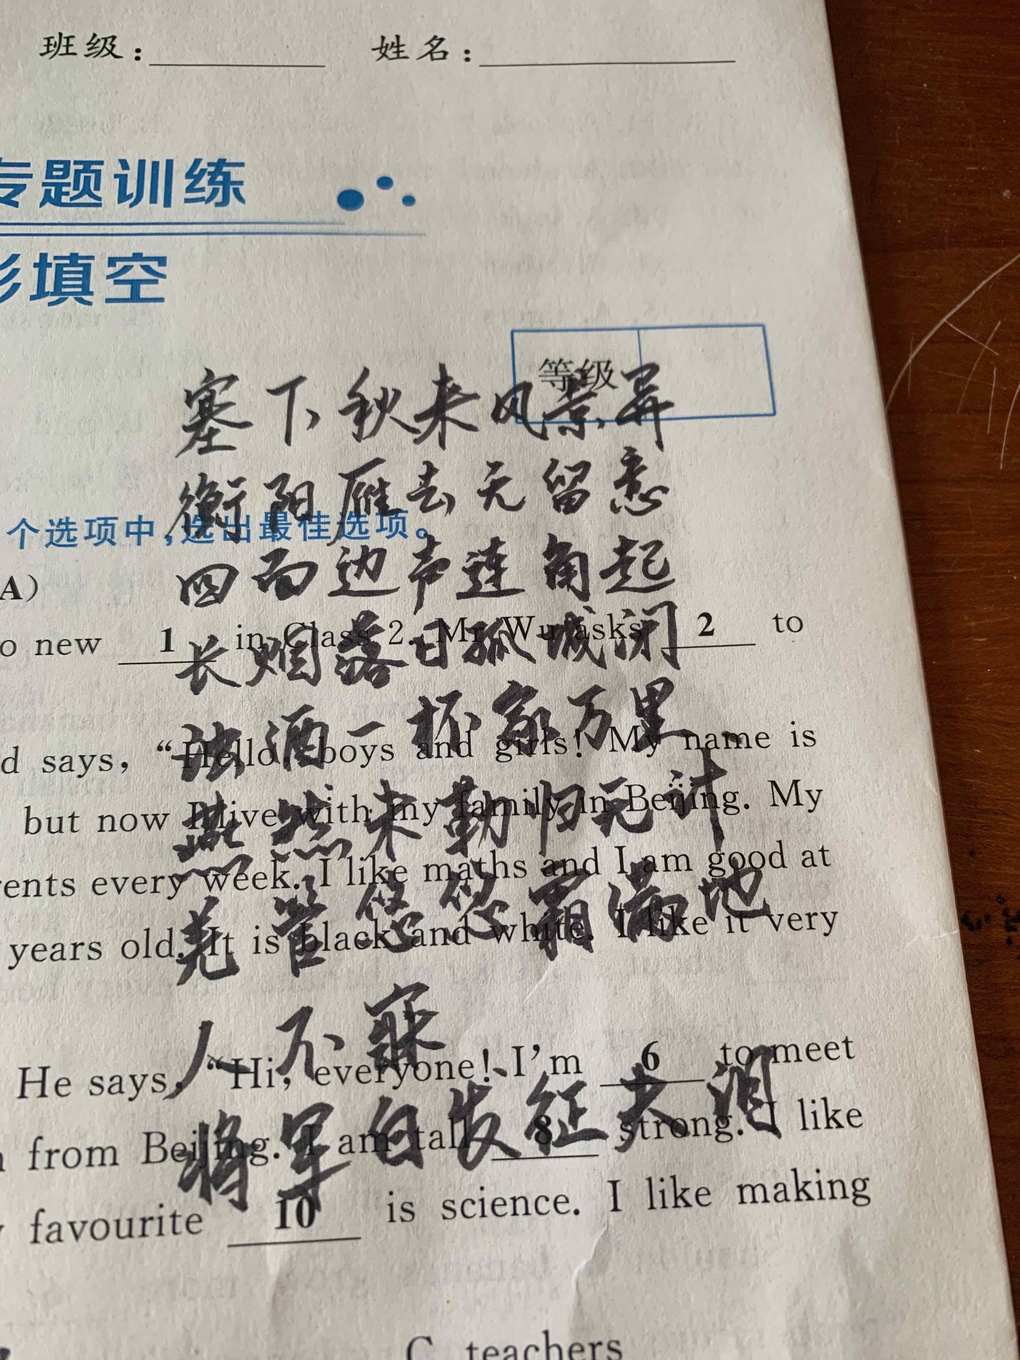 班级：
姓名：
专题训练
形填空
等级
塞下秋来风景异
衡阳雁去无留意
个选项中，选出最佳选项。
四面边声连角起
A）
o new 1 in Class 2. Mr Wu asks 2 to
长烟落日孤城闭
浊酒一杯家万里
d says, “Hello, boys and girls! My name is
燕然未勒归无计
but now I live with my family in Beijing. My
rents every week. I like maths and I am good at
羌管悠悠霜满地
years old. It is black and white. I like it very
人不寐
He says, “Hi, everyone! I’m 6 to meet
将军白发征夫泪
from Beijing. I am tall 8 strong. I like
favourite 10 is science. I like making
C. teachers